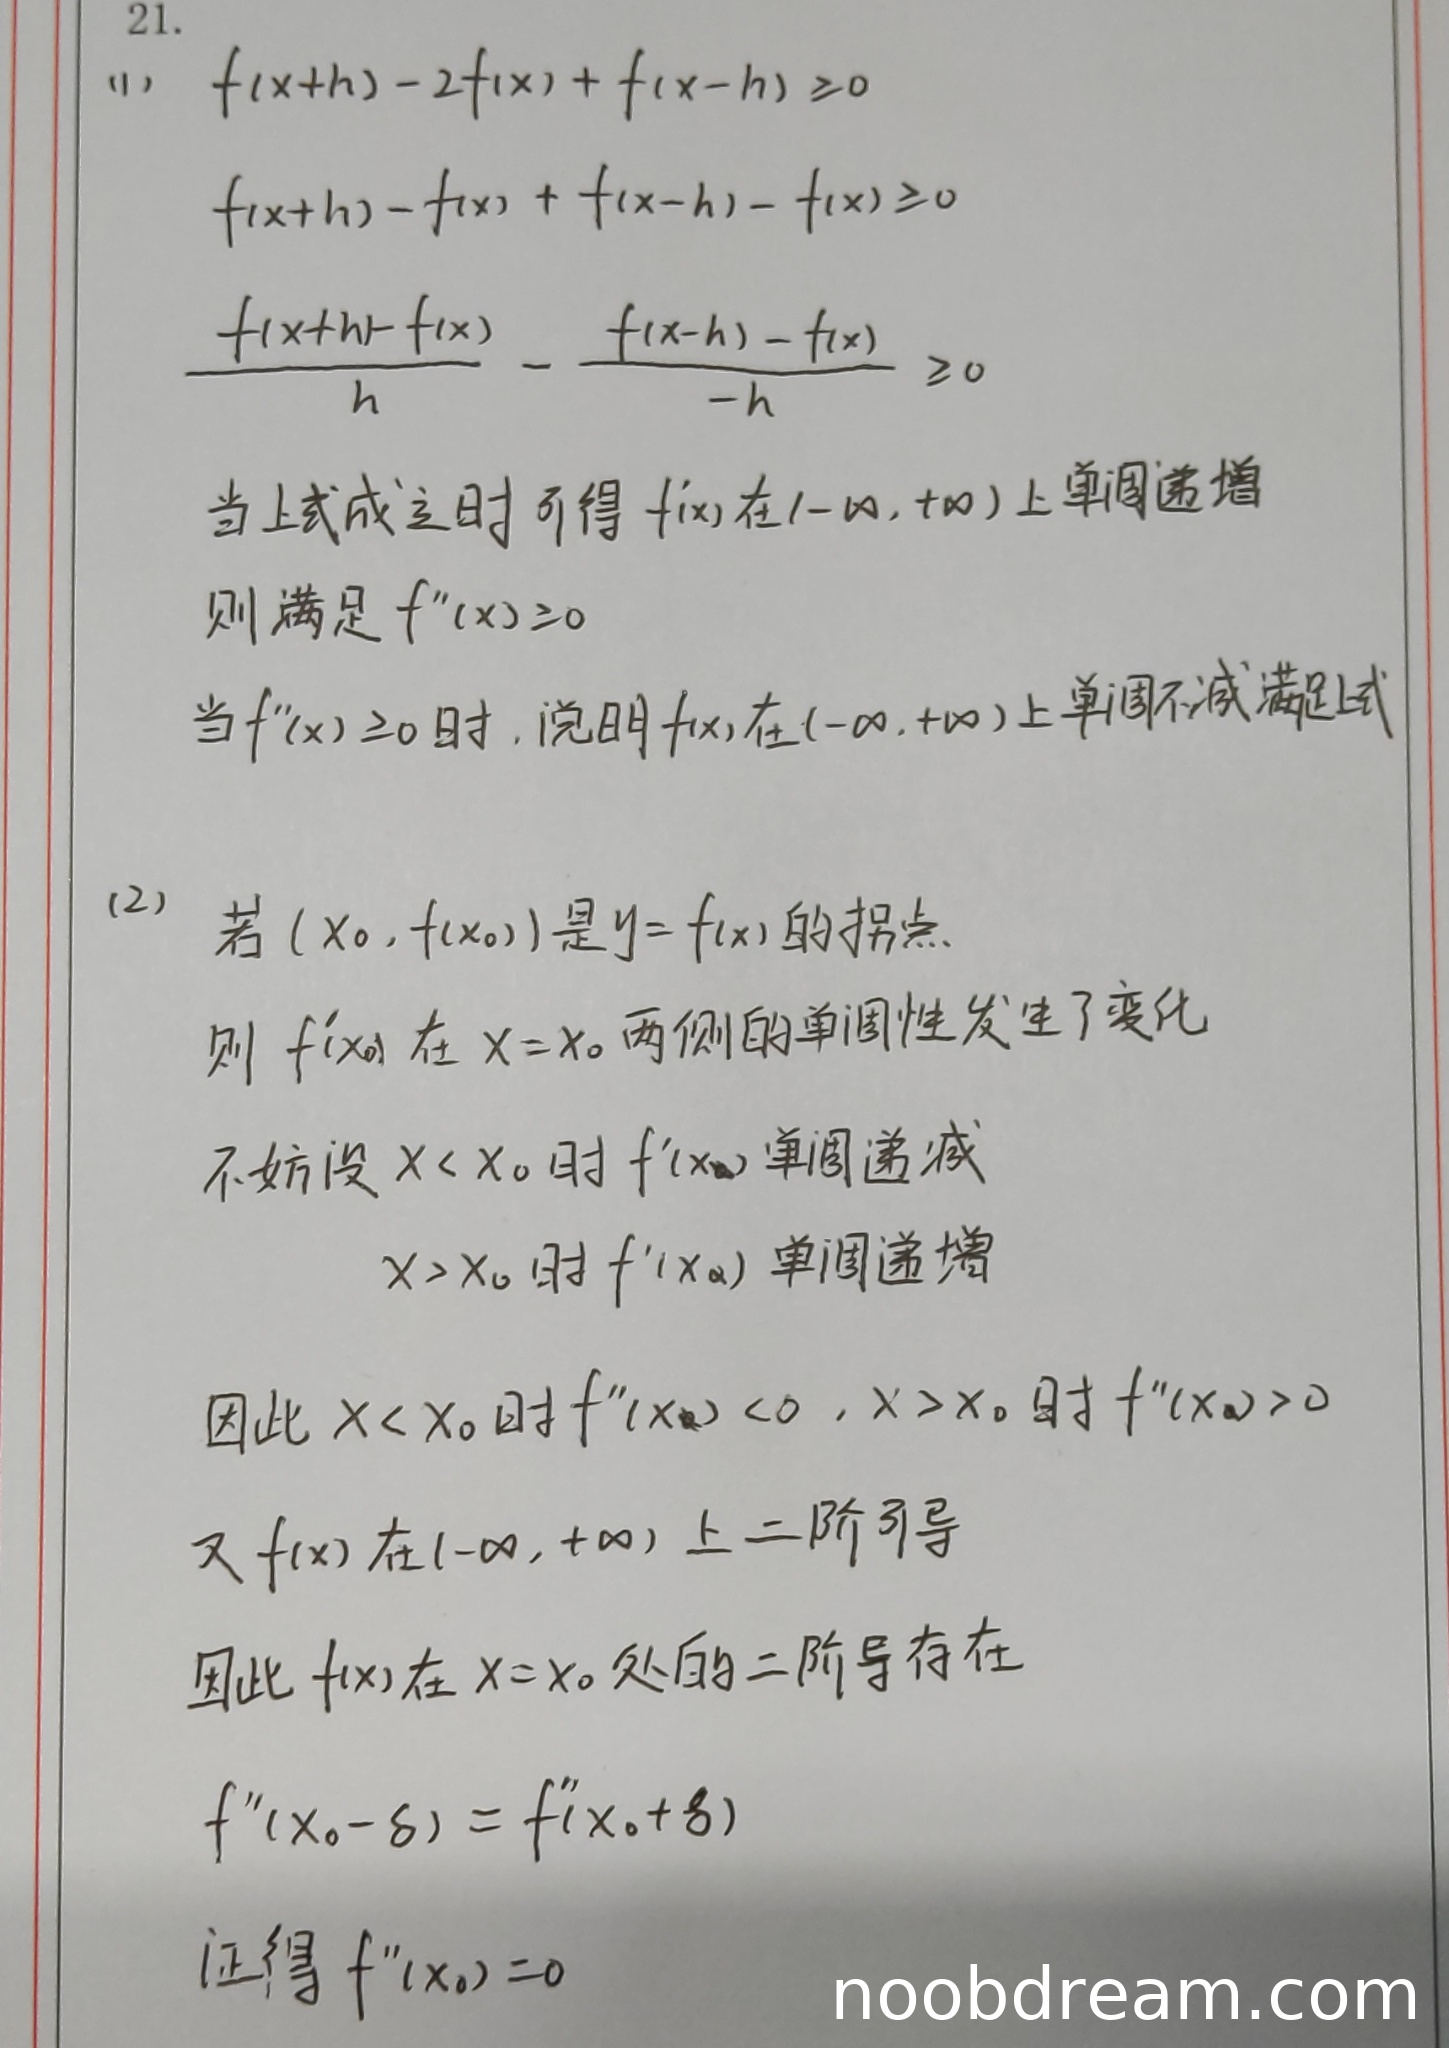 21.
(1) f(x+h)-2f(x)+f(x-h)≥0
f(x+h)-f(x)+f(x-h)-f(x)≥0
f(x+h)-f(x)/h - f(x-h)-f(x)/-h ≥0
当上式成立时可得f'(x)在(-∞,+∞)上单调递增
则满足f''(x)≥0
当f''(x)≥0时,说明f(x)在(-∞,+∞)上单调不减满足上式
(2) 若(x₀,f(x₀))是y=f(x)的拐点
则f'(x₀)在x=x₀两侧的单调性发生了变化
不妨设x<x₀时f'(x)单调递减
x>x₀时f'(x)单调递增
因此x<x₀时f''(x)<0,x>x₀时f''(x)>0
又f(x)在(-∞,+∞)上二阶可导
因此f(x)在x=x₀处的二阶导存在
f''(x₀-δ)=f''(x₀+δ)
证得f''(x₀)=0
noobdream.com